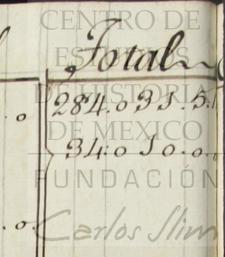 CENTRO DE
ESTUDIOS
DE HISTORIA
DE MEXICO
FUNDACIÓN
Carlos Slim
Total
284.035.5.
34.010.0.
.0
.0.